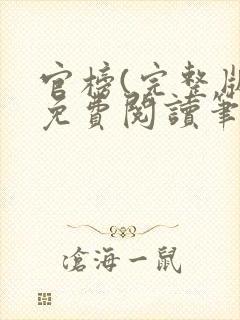 官榜(完整版
免費閱讀筆
滄海一鼠